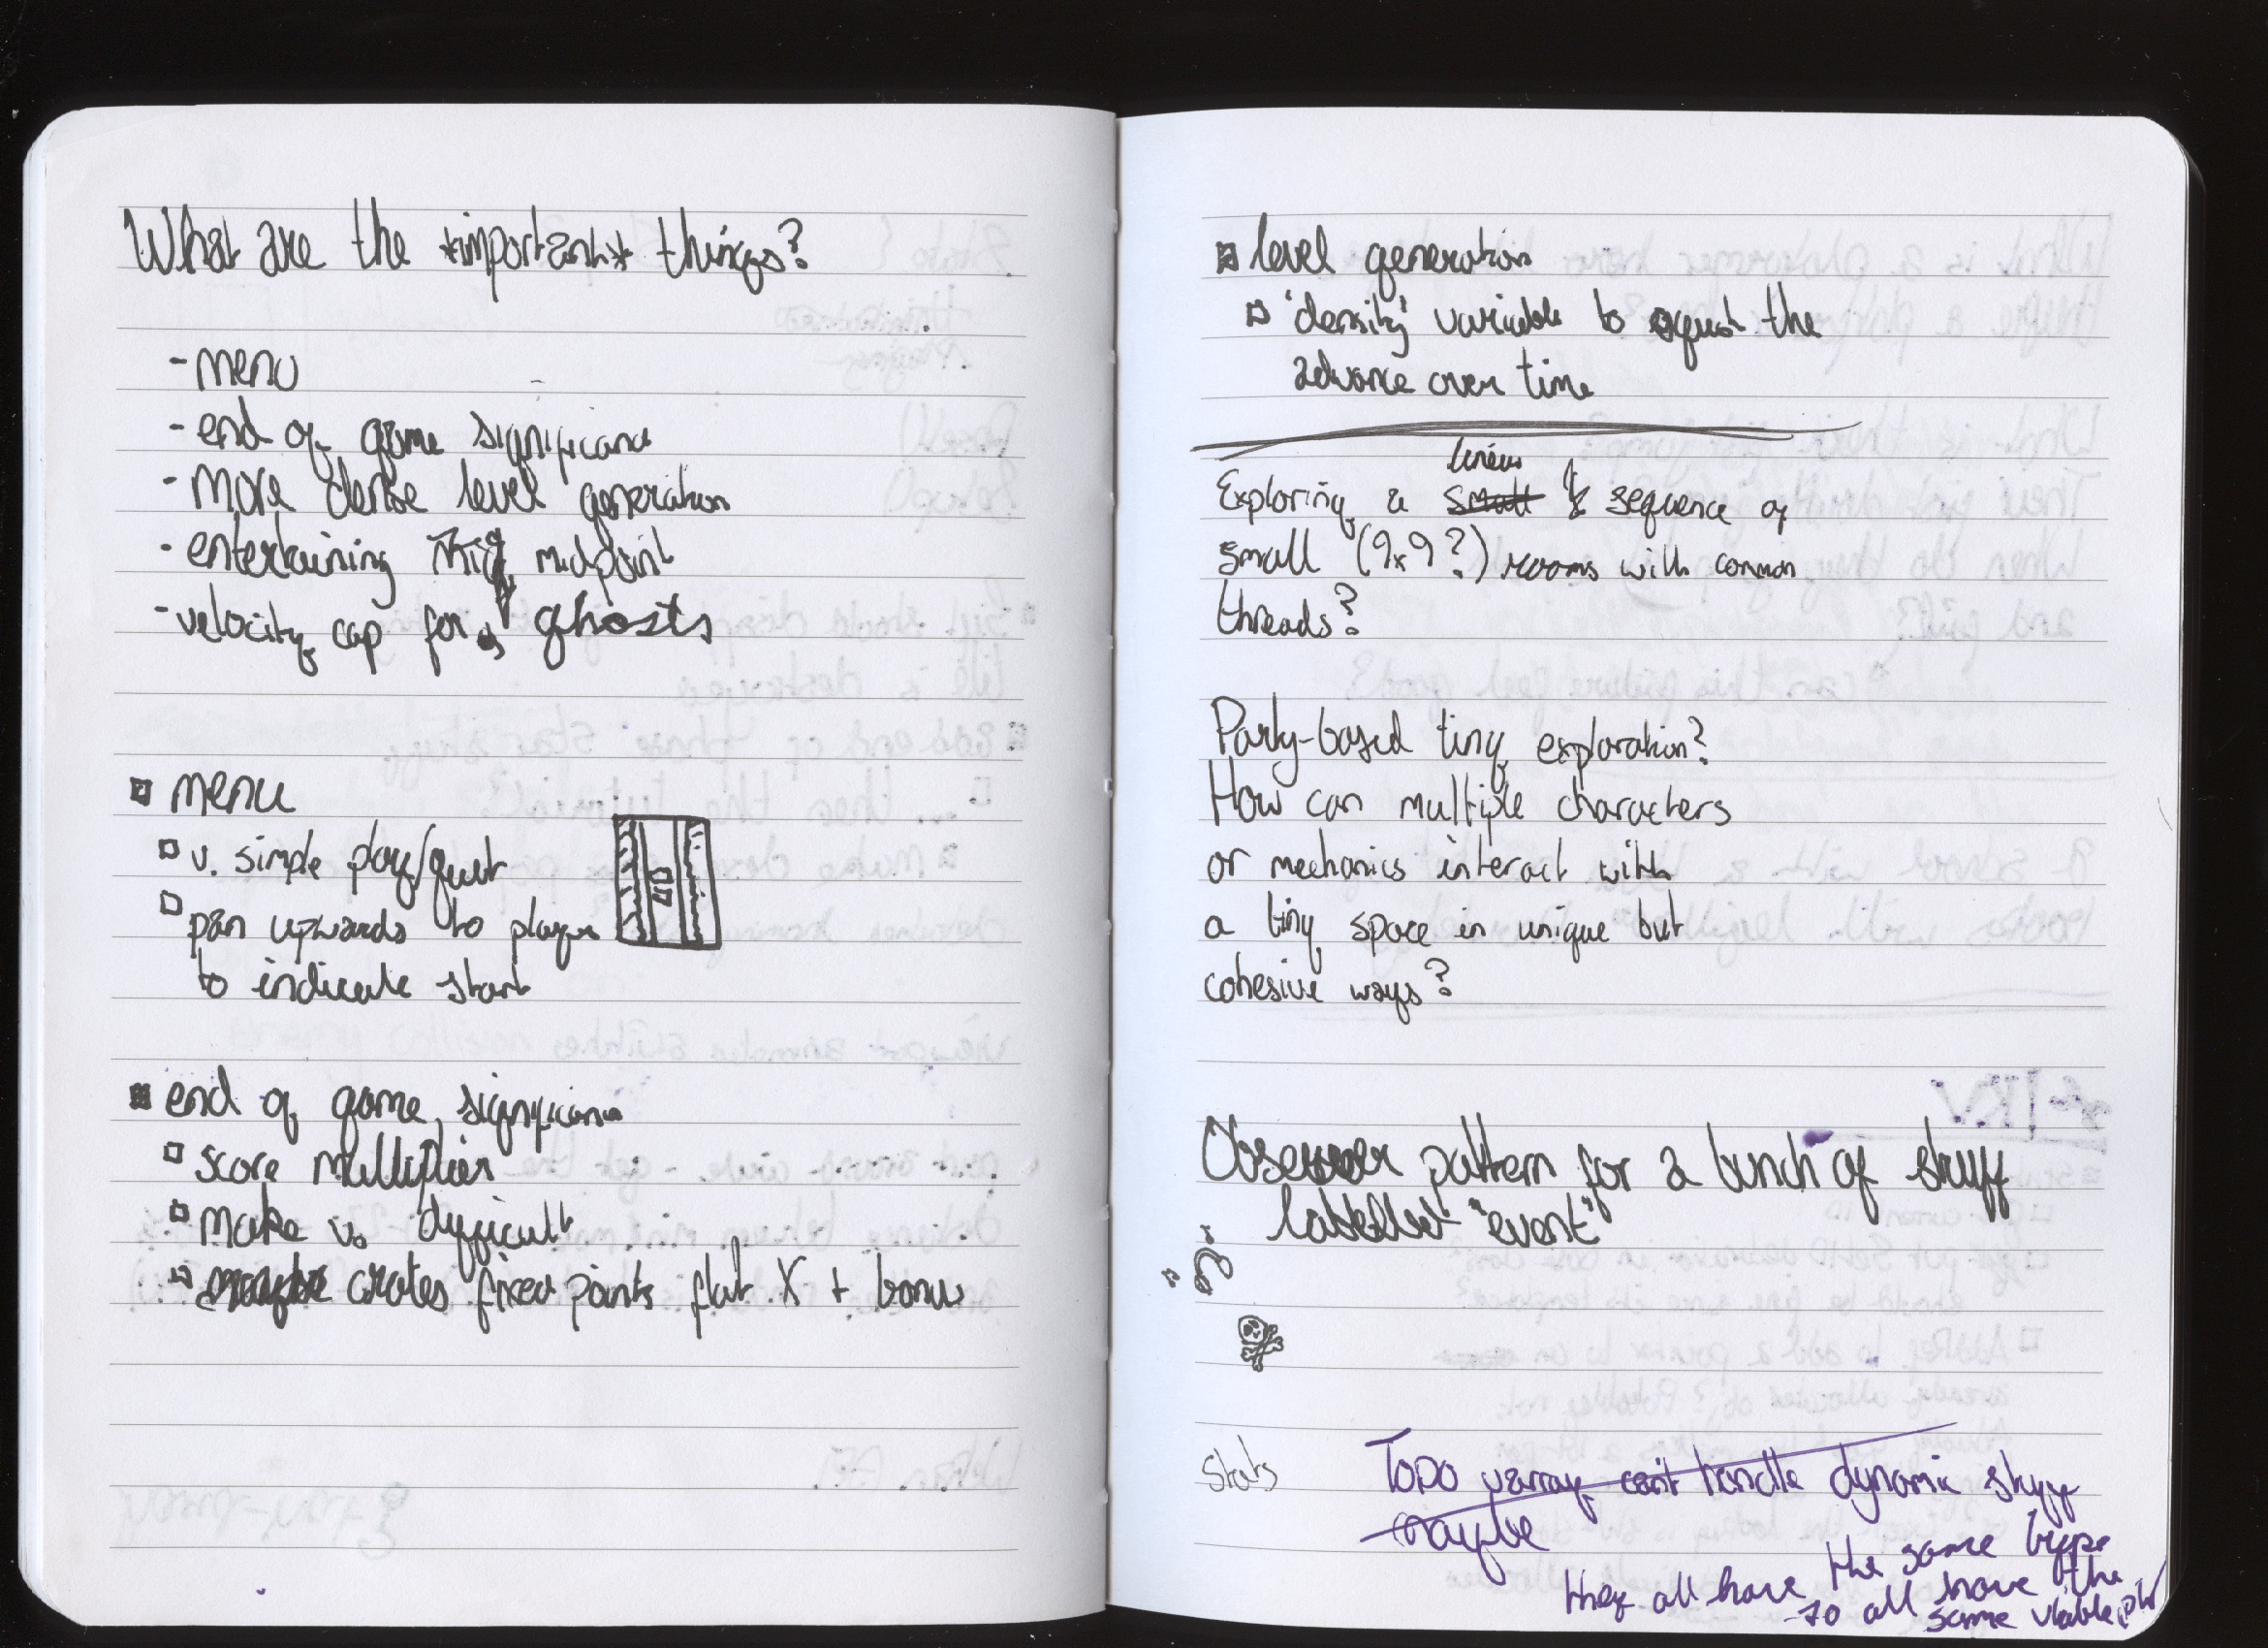 What are the *important* things?
- menu
- end of game significance
- more dense level generation
- entertaining midpoint
- velocity cap for ghosts
menu
v. simple play/quit
pan upwards to player
to indicate start
end of game significance
score multiplier
make v. difficult
crates fixed points flat X + bonus
level generation
'density' variable to adjust the
advance over time
linear
Exploring a small sequence of
small (9x9?) rooms with common
threads?
Party-based tiny exploration?
How can multiple characters
or mechanics interact with
a tiny space in unique but
cohesive ways?
Observer pattern for a bunch of stuff
labelled "event"
Stats
TODO varray can't handle dynamic stuff
maybe
they all have the same type
so all have the
same vtable ptr